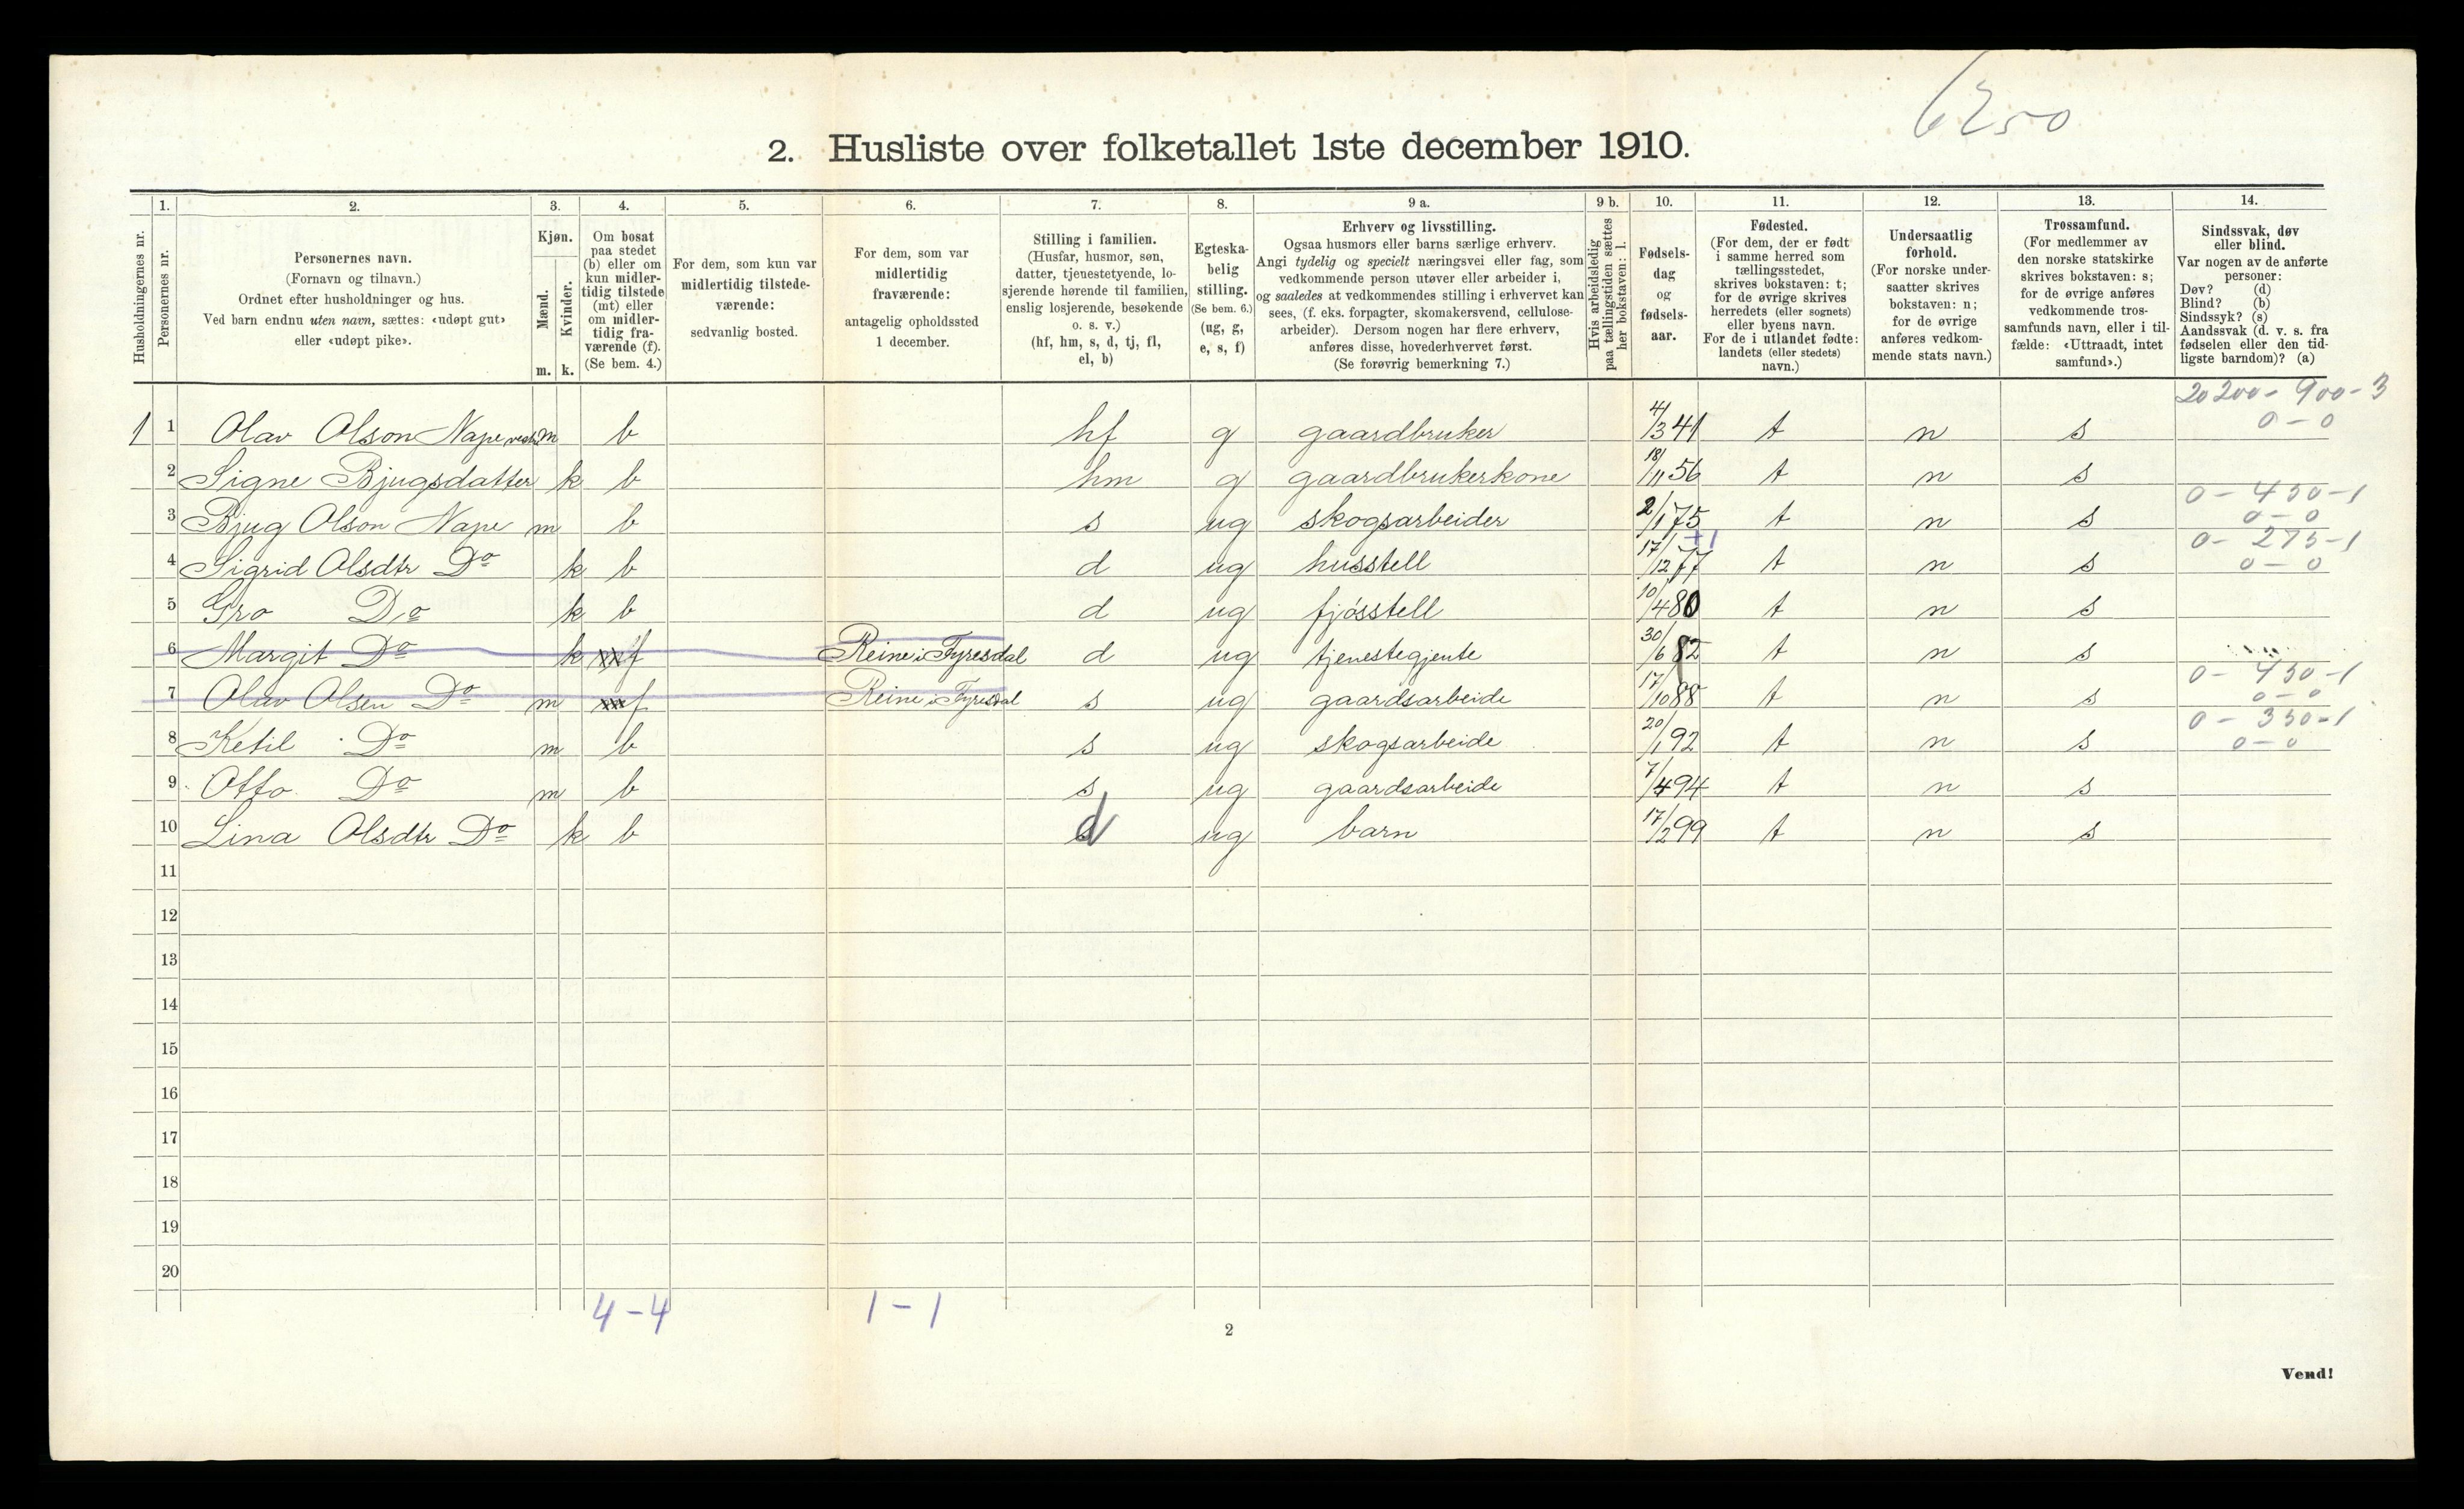 6250
2. Husliste over folketallet 1ste december 1910.
Husholdningernes nr.
1.
Personernes nr.
2.
Personernes navn.
(Fornavn og tilnavn.)
Ordnet efter husholdninger og hus.
Ved barn endnu uten navn, sættes: «udøpt gut»
eller «udøpt pike».
3.
Kjøn.
Mænd.
Kvinder.
m. k.
4.
Om bosat
paa stedet
(b) eller om
kun midler-
tidig tilstede
(mt) eller
om midler-
tidig fra-
værende (f).
(Se bem. 4.)
5.
For dem, som kun var
midlertidig tilstede-
værende:
sedvanlig bosted.
6.
For dem, som var
midlertidig
fraværende:
antagelig opholdssted
1 december.
7.
Stilling i familien.
(Husfar, husmor, søn,
datter, tjenestetyende, lo-
sjerende hørende til familien,
enslig losjerende, besøkende
o. s. v.)
(hf, hm, s, d, tj, fl,
el, b)
8.
Egteska-
belig
stilling.
(Se bem. 6.)
(ug, g,
e, s, f)
9 a.
Erhverv og livsstilling.
Ogsaa husmors eller barns særlige erhverv.
Angi tydelig og specielt næringsvei eller fag, som
vedkommende person utøver eller arbeider i,
og saaledes at vedkommendes stilling i erhvervet kan
sees, (f. eks. forpagter, skomakersvend, cellulose-
arbeider). Dersom nogen har flere erhverv,
anføres disse, hovederhvervet først.
(Se forøvrig bemerkning 7.)
9 b.
Hvis arbeidsledig
paa tællingstiden sættes
her bokstaven: l.
10.
Fødsels-
dag
og
fødsels-
aar.
11.
Fødested.
(For dem, der er født
i samme herred som
tællingsstedet,
skrives bokstaven: t;
for de øvrige skrives
herredets (eller sognets)
eller byens navn.
For de i utlandet fødte:
landets (eller stedets)
navn.)
12.
Undersaatlig
forhold.
(For norske under-
saatter skrives
bokstaven: n;
for de øvrige
anføres vedkom-
mende stats navn.)
13.
Trossamfund.
(For medlemmer av
den norske statskirke
skrives bokstaven: s;
for de øvrige anføres
vedkommende tros-
samfunds navn, eller i til-
fælde: «Uttraadt, intet
samfund».)
14.
Sindssvak, døv
eller blind.
Var nogen av de anførte
personer:
Døv? (d)
Blind? (b)
Sindssyk? (s)
Aandssvak (d. v. s. fra
fødselen eller den tid-
ligste barndom)? (a)
20200 - 900 - 3
1 1 Olav Olson Nape vestre m b hf g gaardbruker 4/3 41 t n s 0 - 0
2 Signe Bjugsdatter k b hm g gaardbrukerkone 18/11 56 t n s
0 - 450 - 1
3 Bjug Olson Nape m b s ug skogsarbeider 2/1 75 t n s 0 - 0
+1 0 - 275 - 1
4 Sigrid Olsdtr Do k b d ug husstell 17/12 77 t n s 0 - 0
5 Gro Do k b d ug fjøsstell 10/4 80 t n s
6 Margit Do k f Reine i Fyresdal d ug tjenestegjente 30/6 82 t n s
0 - 450 - 1
7 Olav Olsen Do m f Reine i Fyresdal s ug gaardsarbeide 17/10 88 t n s 0 - 0
0 - 350 - 1
8 Ketil Do m b s ug skogsarbeide 20/1 92 t n s 0 - 0
9 Otto Do m b s ug gaardsarbeide 7/4 94 t n s
10 Lina Olsdtr Do k b d ug barn 17/2 99 t n s
11
12
13
14
15
16
17
18
19
20
4 - 4 1 - 1
2
Vend!